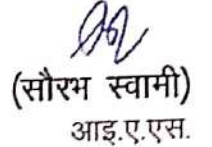 (सौरभ स्वामी)
आइ.ए.एस.